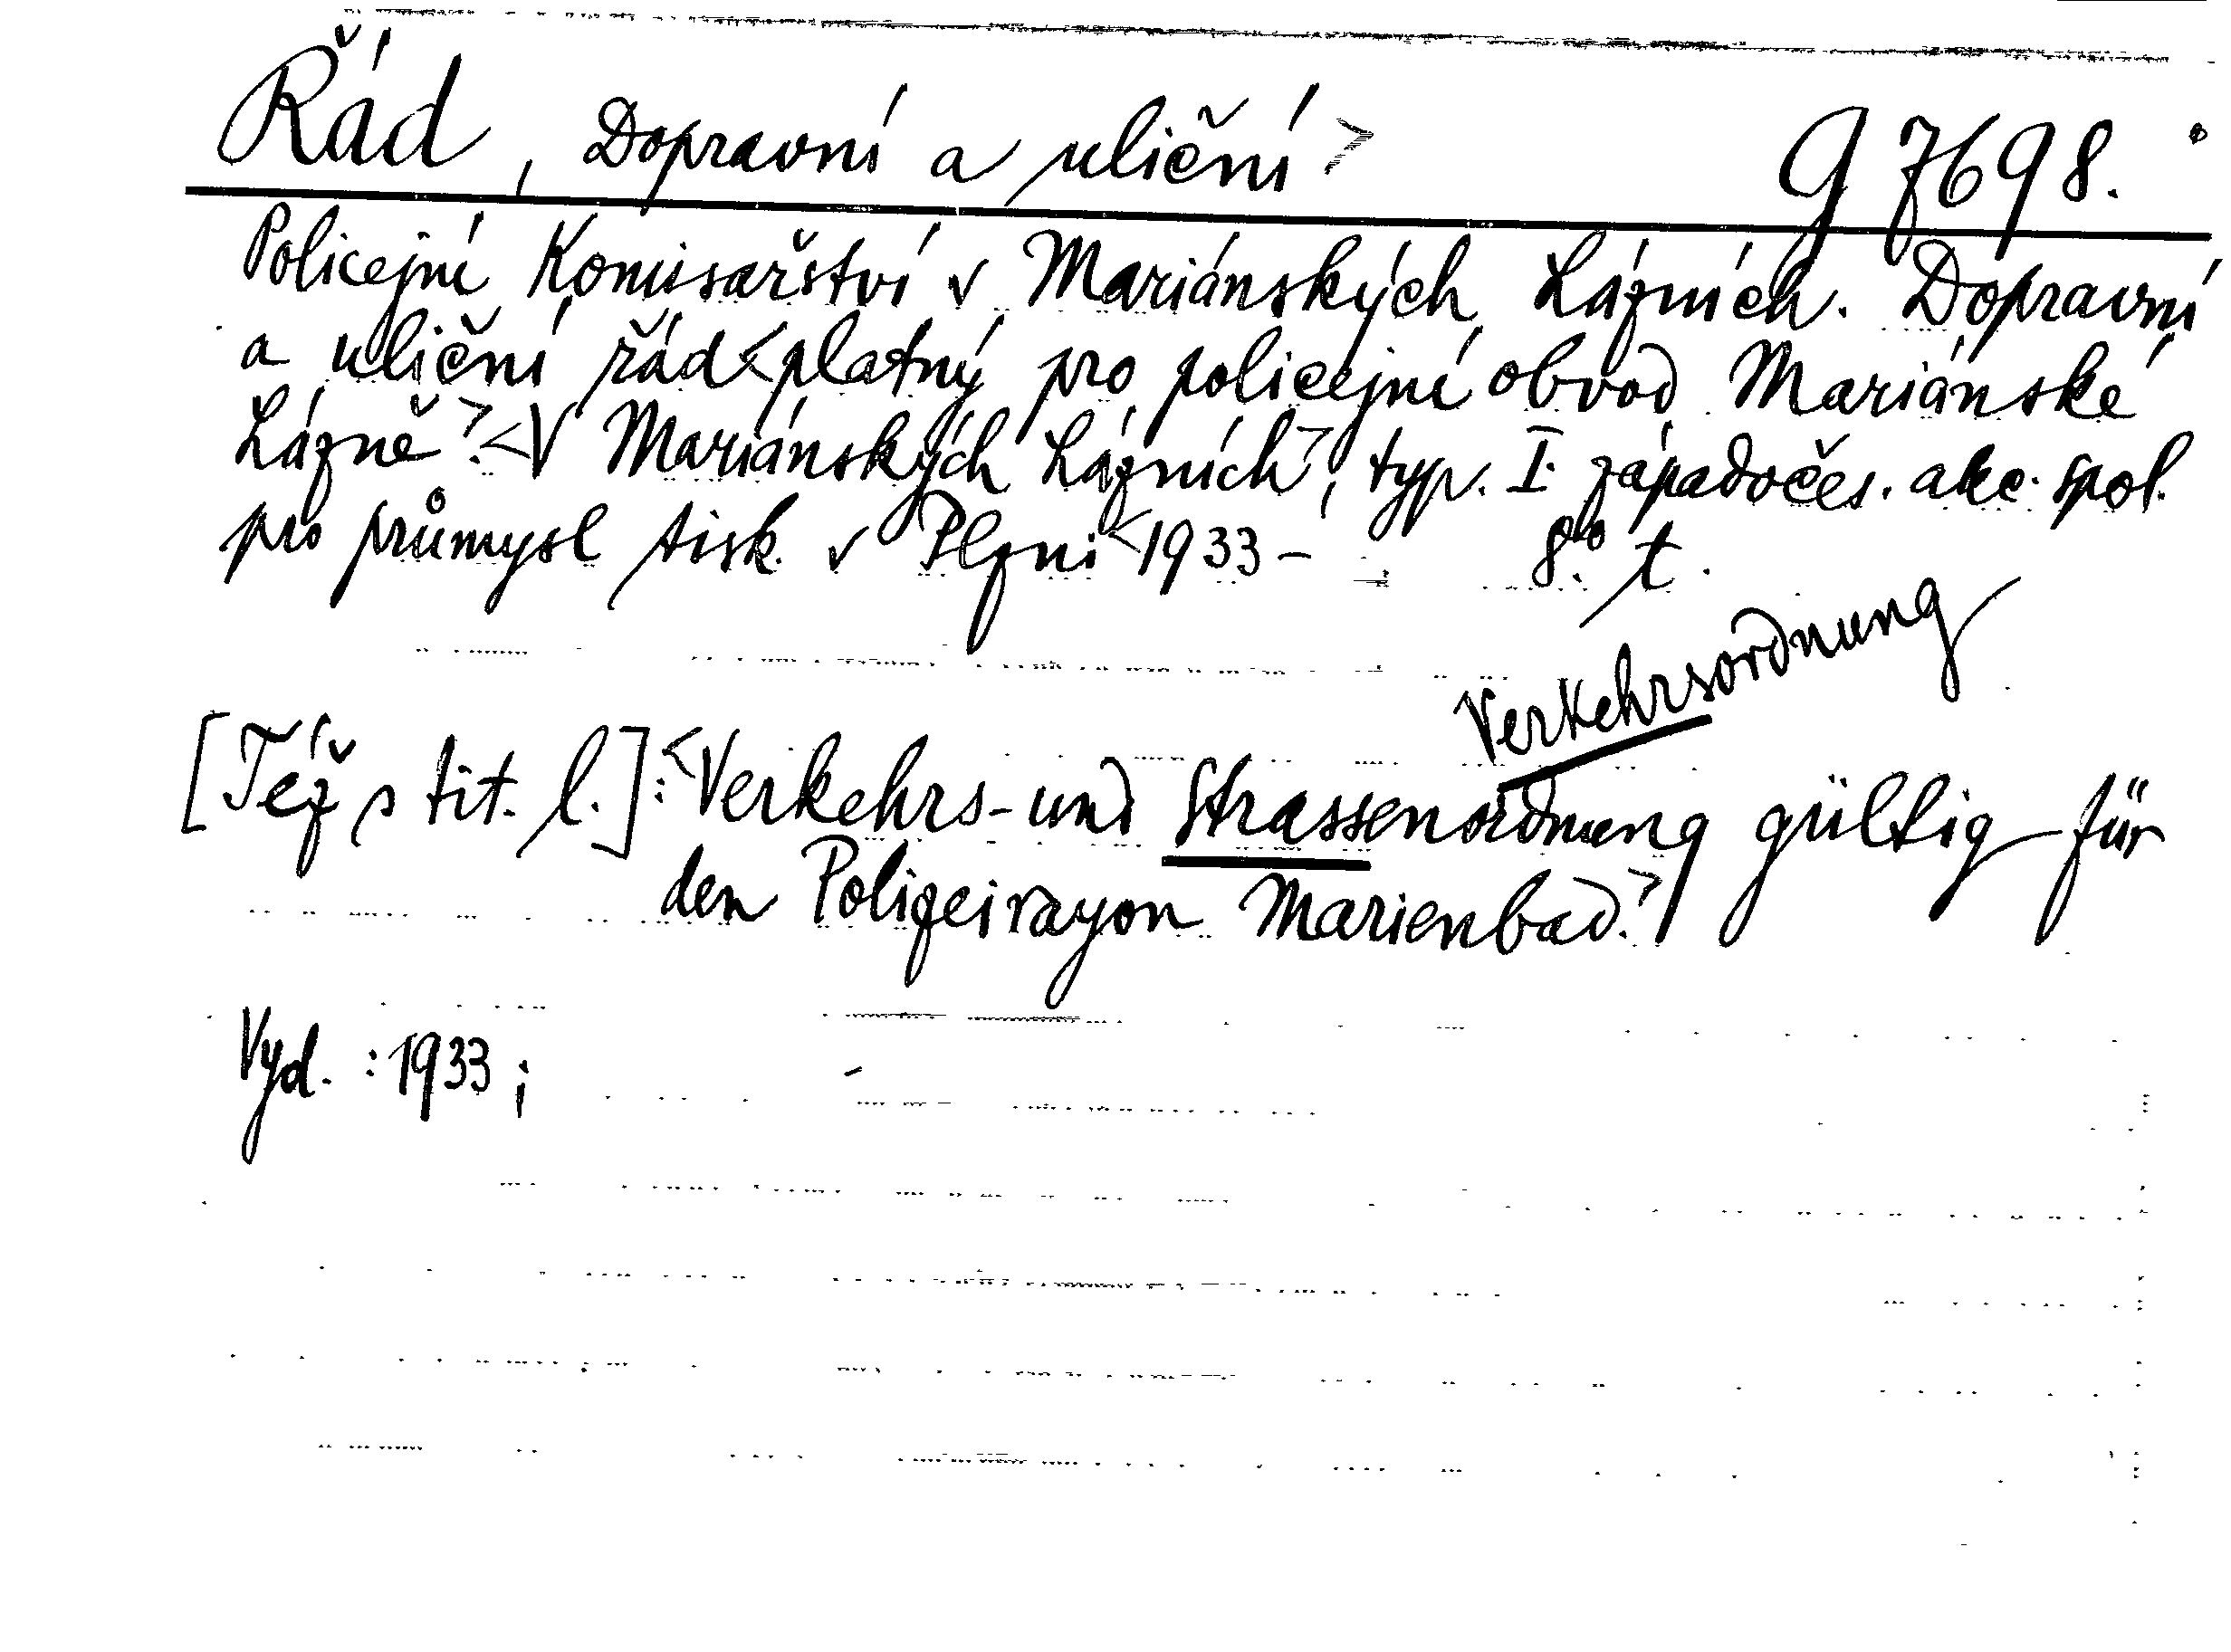 Řád, Dopravní a uliční> g 7698.
Policejní Komisařství v Mariánských Lázních. Dopravní
a uliční řád<platný pro policejní obvod Mariánské
Lázně>.<V Mariánských Lázních>, typ. I. západočes. akc. spol.
pro průmysl tisk. v Plzni<1933- 8° t.
Verkehrsordnung
[Též s tit. l.]:<Verkehrs- und Strassenordnung gültig für
den Polizeirayon Marienbad.>
Vyd. : 1933 ;